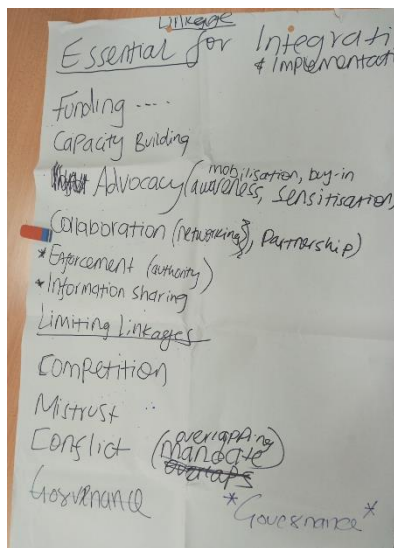 Linkage
Essential for Integrati
& Implementat
Funding ....
Capacity Building
Advocacy (mobilisation, buy-in
awareness, sensitisation,
Collaboration (networking), Partnership)
*Enforcement (authority)
*Information sharing
Limiting linkages
Competition
Mistrust
Conflict (overlapping
mandate)
overlaps
Gorvenance
*Governance*